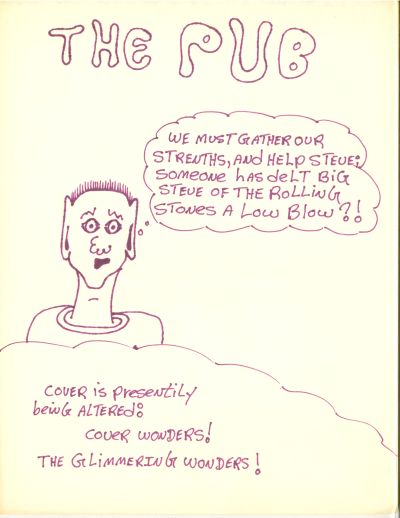 THE PUB
WE MUST GATHER OUR
STRENTHS, AND HELP STEVE;
SOMEONE HAS deLT BiG
STEVE OF THE ROLLiNG
STONES A LOW BLOW?!!
COVER iS presentily
beiNG ALTERed:
COVER WONDERS!
THE GLiMMERiNG WONDERS!